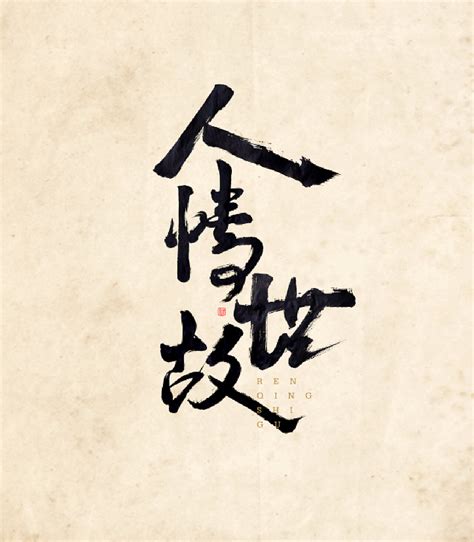 人情世故
REN
QING
SHI
GU